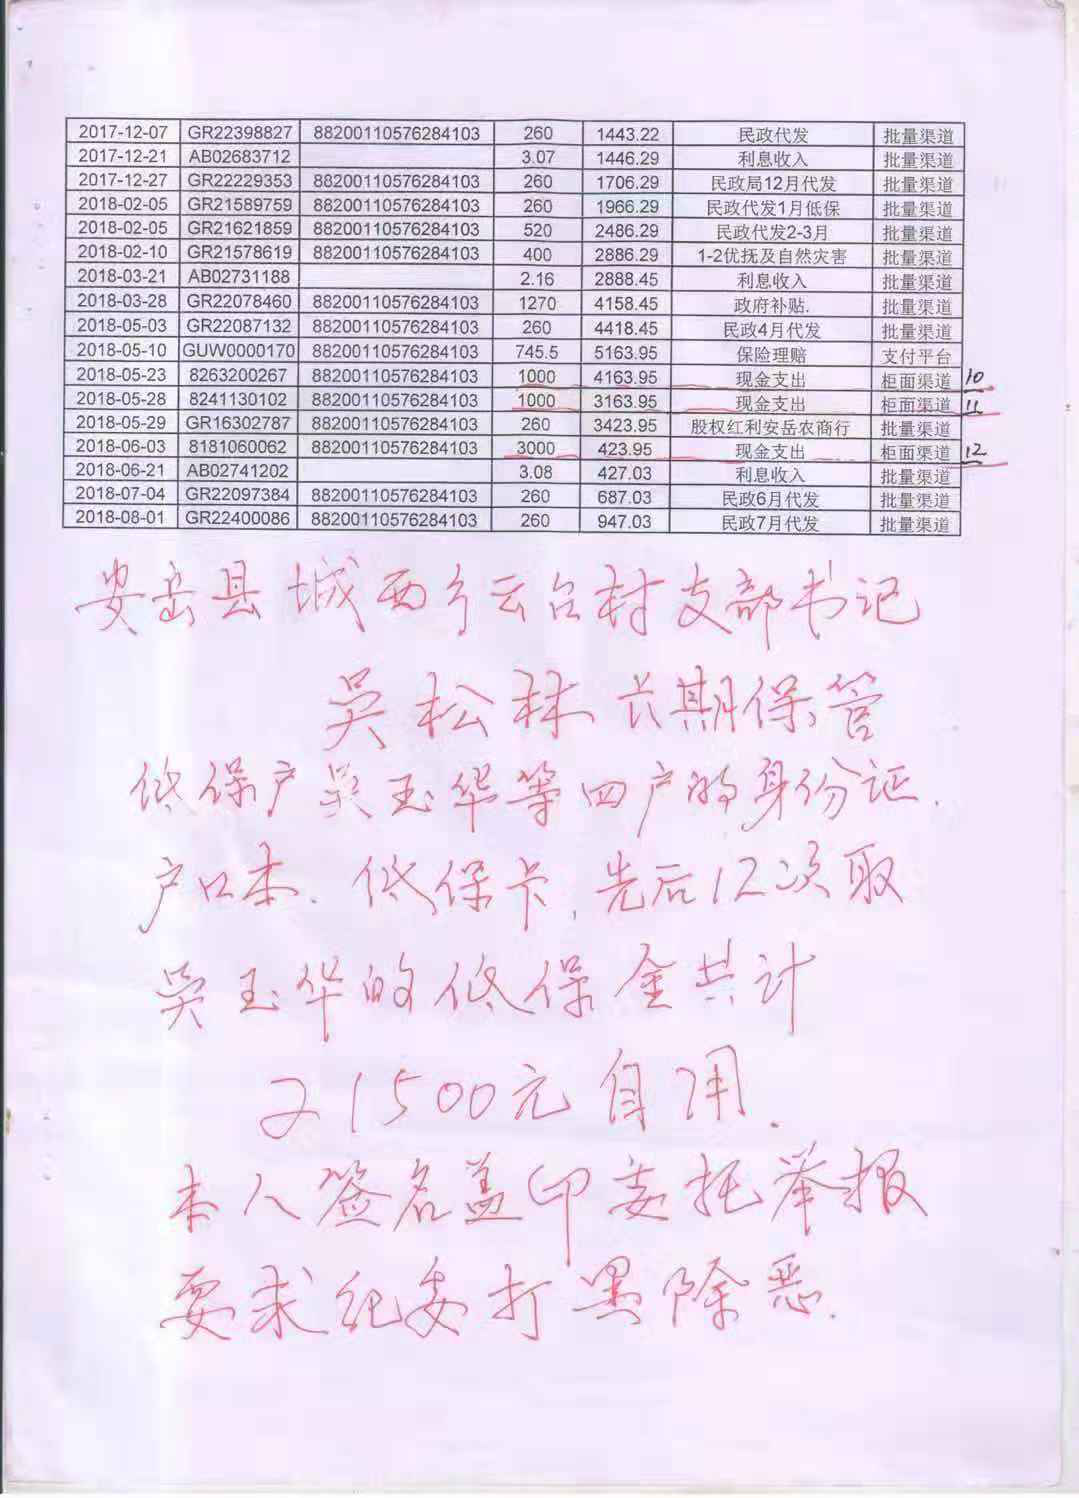 2017-12-07 GR22398827 88200110576284103 260 1443.22 民政代发 批量渠道
2017-12-21 AB02683712 3.07 1446.29 利息收入 批量渠道
2017-12-27 GR22229353 88200110576284103 260 1706.29 民政局12月代发 批量渠道
2018-02-05 GR21589759 88200110576284103 260 1966.29 民政代发1月低保 批量渠道
2018-02-05 GR21621859 88200110576284103 520 2486.29 民政代发2-3月 批量渠道
2018-02-10 GR21578619 88200110576284103 400 2886.29 1-2优抚及自然灾害 批量渠道
2018-03-21 AB02731188 2.16 2888.45 利息收入 批量渠道
2018-03-28 GR22078460 88200110576284103 1270 4158.45 政府补贴. 批量渠道
2018-05-03 GR22087132 88200110576284103 260 4418.45 民政4月代发 批量渠道
2018-05-10 GUW0000170 88200110576284103 745.5 5163.95 保险理赔 支付平台
2018-05-23 8263200267 88200110576284103 1000 4163.95 现金支出 柜面渠道 10
2018-05-28 8241130102 88200110576284103 1000 3163.95 现金支出 柜面渠道 11
2018-05-29 GR16302787 88200110576284103 260 3423.95 股权红利安岳农商行 批量渠道
2018-06-03 8181060062 88200110576284103 3000 423.95 现金支出 柜面渠道 12
2018-06-21 AB02741202 3.08 427.03 利息收入 批量渠道
2018-07-04 GR22097384 88200110576284103 260 687.03 民政6月代发 批量渠道
2018-08-01 GR22400086 88200110576284103 260 947.03 民政7月代发 批量渠道
安岳县城西乡云台村支部书记
吴松林长期保管
低保户吴玉华等四户的身份证.
户口本.低保卡,先后12次取
吴玉华的低保金共计
21500元自用.
本人签名盖印委托举报
要求纪委打黑除恶.